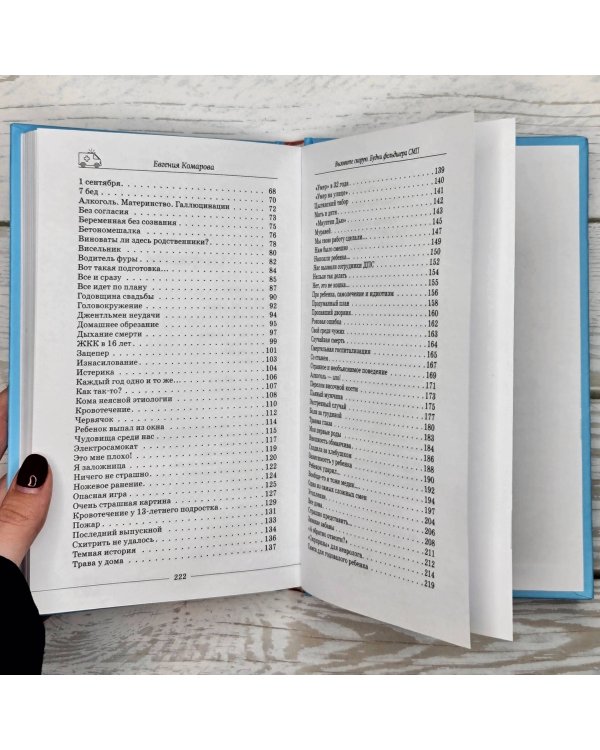 Евгения Комарова
1 сентября. 68
7 бед 70
Алкоголь. Материнство. Галлюцинации 72
Без согласия 73
Беременная без сознания 75
Бетономешалка 76
Виноваты ли здесь родственники? 78
Висельник 80
Водитель фуры 82
Вот такая подготовка 84
Все и сразу 85
Все идет по плану 87
Годовщина свадьбы 90
Головокружение 92
Джентльмен неудачи 94
Домашнее обрезание 95
Дыхание смерти 97
ЖКК в 16 лет 99
Зацепер 101
Изнасилование 103
Истерика 104
Каждый год одно и то же 106
Как так-то? 107
Кома неясной этиологии 108
Кровотечение 110
Червячок 112
Ребенок выпал из окна 114
Чудовища среди нас 115
Электросамокат 117
Это мне плохо! 119
Я заложница 120
Ничего не страшно 122
Ножевое ранение 124
Опасная игра 125
Очень страшная картина 127
Кровотечение у 13-летнего подростка 129
Пожар 131
Последний выпускной 133
Схитрить не удалось 134
Темная история 136
Трава у дома 137
222
Вызовите скорую. Будни фельдшера СМП
«Умер» в 32 года 139
«Умер на улице» 140
Цыганский табор 141
Мать и дитя 142
Дью» 143
Муравей 145
Мы свою работу сделали 147
Нам было смешно 149
Напоили ребенка 150
Нас вызвали сотрудники ДПС 152
Нельзя так делать 154
Нет, это не кошка 155
При ребенка, самолечение и идиотизм 156
Продуманный план 158
Пропавший дворник 160
Роковая ошибка 163
Свой среди чужих 164
Случайная смерть 165
Смертельная госпитализация 167
Со стажем 169
Странное и необъяснимое поведение 171
Алкоголь — зло! 173
Перелом височной кости 175
Пьяный мужчина 177
Экстренный случай 180
Боли за грудиной 183
Травма глаза 184
Мои первые роды 186
Внешность обманчива 188
Сходила за хлебушком 190
Зависимость у ребенка 192
Ребенок ударил 194
Вообще-то я тоже медик 197
Одна из самых сложных смен
Утопление 204
Все дома 206
Страшно представить 208
Зимние забавы 211
«А обратно отвезете?» 212
«Сюрпризы» для невролога 214
для годовалого ребенка 219